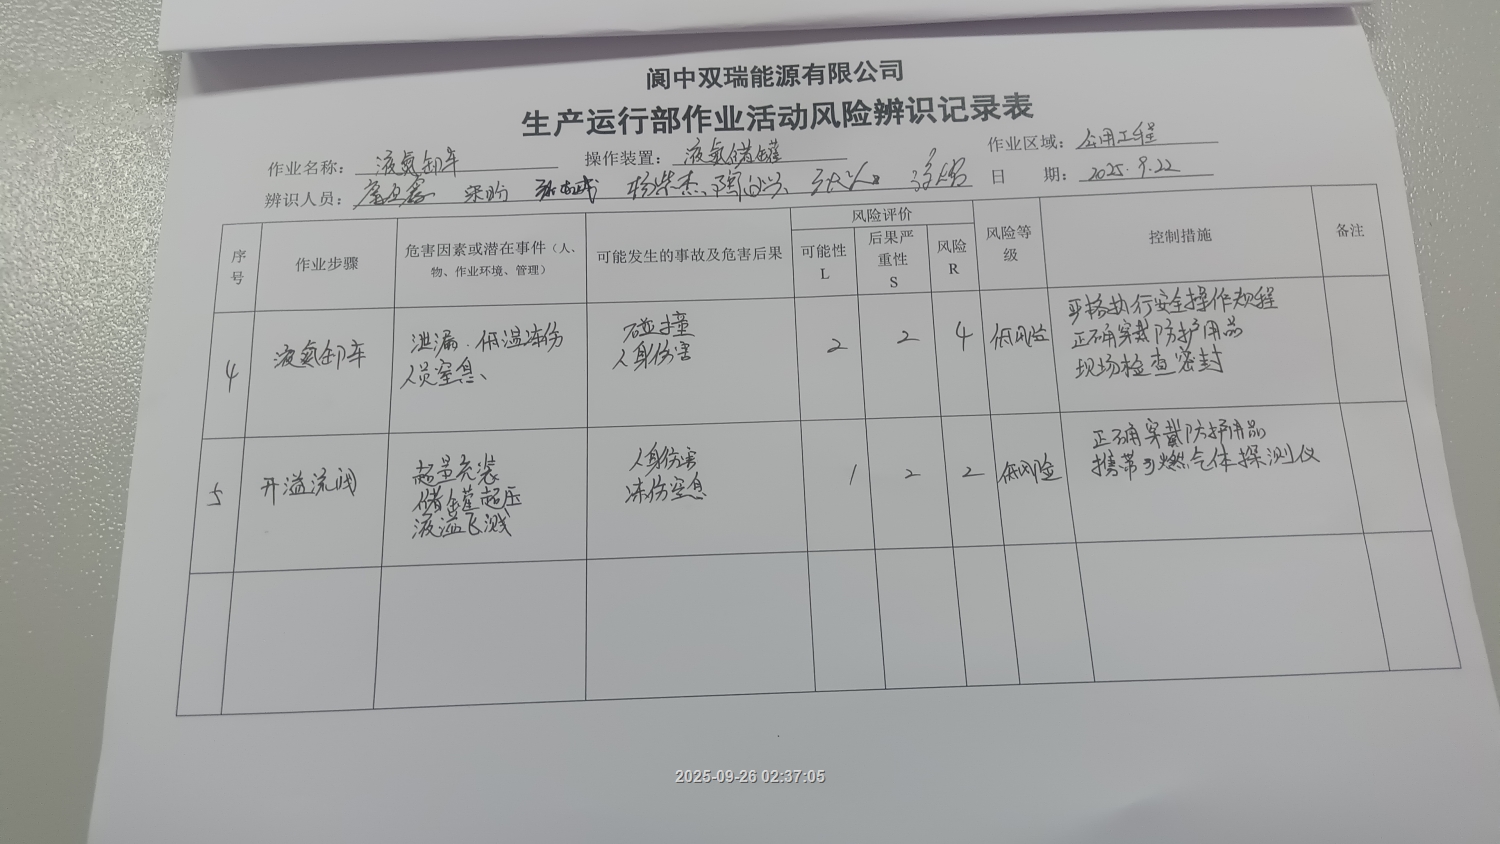 阆中双瑞能源有限公司
生产运行部作业活动风险辨识记录表
作业名称：液氮卸车 操作装置：液氮储罐 作业区域：公用工程
辨识人员： 梁盼 杨荣杰、 日 期：2025.9.22
序号 作业步骤 危害因素或潜在事件（人、物、作业环境、管理） 可能发生的事故及危害后果 风险评价 可能性 L 后果严重性 S 风险 R 风险等级 控制措施 备注
4 液氮卸车 泄漏.低温冻伤 人员窒息、 碰撞 人身伤害 2 2 4 低风险 严格执行安全操作规程 正确穿戴防护用品 现场检查密封
5 开溢流阀 超量充装 储罐超压 液溢飞溅 人身伤害 冻伤窒息 1 2 2 低风险 正确穿戴防护用品 携带可燃气体探测仪
2025-09-26 02:37:05